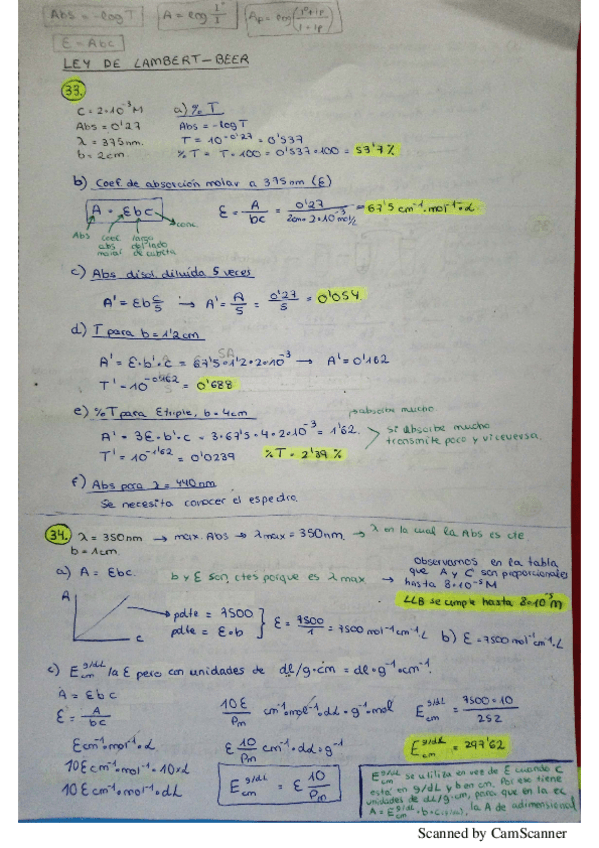 Abs = -log T   A = log I°/I   Ap = log (I°+Ip / I+Ip)
E = Abc
LEY DE LAMBERT-BEER
33.
C = 2·10⁻³ M   a) % T
Abs = 0'27   Abs = -log T
λ = 375 nm.   T = 10^-0'27 = 0'537
b = 2cm.   % T = T·100 = 0'537·100 = 53'7 %
b) Coef. de absorción molar a 375 nm (ε)
A = εbc   ε = A/bc = 0'27 / 2cm·2·10⁻³ mol/L = 67'5 cm⁻¹·mol⁻¹·L
conc.
Abs   coef. abs molar   largo del lado de cubeta
c) Abs disol. diluida 5 veces
A' = εb c/5 → A' = A/5 = 0'27/5 = 0'054.
d) T para b = 1'2cm
A' = ε·b'·c = 67'5·1'2·2·10⁻³ → A' = 0'162
T' = 10^-0'162 = 0'688
e) % T para ε triple, b = 4cm   absorbe mucho
A' = 3ε·b'·c = 3·67'5·4·2·10⁻³ = 1'62.   si absorbe mucho
transmite poco y viceversa.
T' = 10^-1'62 = 0'0239   % T = 2'39 %
f) Abs para λ = 440 nm
Se necesita conocer el espectro.
34. λ = 350 nm → max. Abs → λmax = 350 nm. → λ en la cual la Abs es cte.
b = 1cm
a) A = εbc.   b y ε son ctes porque es λ max → observamos en la tabla
que A y C son proporcionales
hasta 8·10⁻⁵ M
LLB se cumple hasta 8·10⁻⁵ M
A   C
pdte = 7500
pdte = ε·b   ε = 7500/1 = 7500 mol⁻¹cm⁻¹L   b) ε = 7500 mol⁻¹cm⁻¹·L
c) E g/dL cm la ε pero con unidades de dL/g·cm = dL·g⁻¹·cm⁻¹.
A = εbc
ε = A/bc   10ε/Pm cm⁻¹·mol⁻¹·dL·g⁻¹·mol   E g/dL cm = 7500·10 / 252
εcm⁻¹·mol⁻¹·L   ε 10/Pm cm⁻¹·dL·g⁻¹   E g/dL cm = 297'62
10εcm⁻¹·mol⁻¹·
10εcm⁻¹·mol⁻¹·dL   E g/dL cm = ε 10/Pm
E g/dL cm se utiliza en vez de ε cuando C
está en g/dL y b en cm. Por eso tiene
unidades de dL/g·cm, para que en la ec
A = E g/dL cm ·b·c, la A de adimensional
Scanned by CamScanner